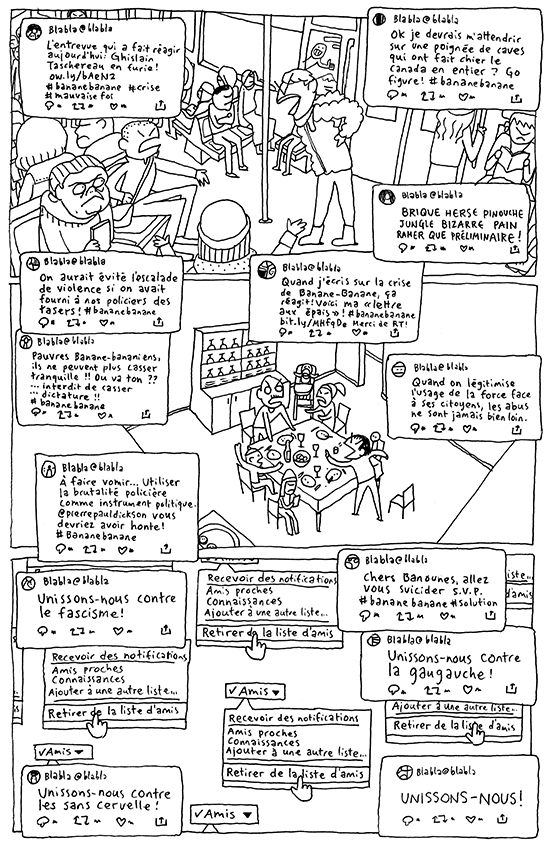 Blabla@blabla
L'entrevue qui a fait réagir
aujourd'hui: Ghislain
Taschereau en furie!
ow.ly/bAEN2
#bananebanane #crise
#mauvaise foi
Blabla@blabla
Ok je devrais m'attendrir
sur une poignée de caves
qui ont fait chier le
Canada en entier ? Go
figure! #bananebanane
Blabla@blabla
BRIQUE HERSE PINOUCHE
JUNGLE BIZARRE PAIN
RAMER QUE PRÉLIMINAIRE!
Blabla@blabla
On aurait évité l'escalade
de violence si on avait
fourni à nos policiers des
tasers! #bananebanane
Blabla@blabla
Quand j'écris sur la crise
de Banane-Banane, ça
réagit! Voici ma «lettre
aux épais»! #bananebanane
bit.ly/MHfqDe Merci de RT!
Blabla@blabla
Pauvres Banane-bananiens,
ils ne peuvent plus casser
tranquille !! Ou va ton ??
... interdit de casser
... dictature !!
#bananebanane
Blabla@blabla
Quand on légitimise
l'usage de la force face
à ses citoyens, les abus
ne sont jamais bien loin.
Blabla@blabla
À faire vomir... Utiliser
la brutalité policière
comme instrument politique.
@pierrepauldickson vous
devriez avoir honte!
#Bananebanane
Blabla@blabla
Unissons-nous contre
le fascisme!
Recevoir des notifications
Amis proches
Connaissances
Ajouter à une autre liste...
Retirer de la liste d'amis
Blabla@blabla
Chers Banounes, allez
vous suicider S.V.P.
#bananebanane #solution
iste...
d'amis
Blabla@blabla
Unissons-nous contre
la gaugauche!
Recevoir des notifications
Amis proches
Connaissances
Ajouter à une autre liste...
Retirer de la liste d'amis
✓Amis ▼
Recevoir des notifications
Amis proches
Connaissances
Ajouter à une autre liste...
Retirer de la liste d'amis
Ajouter à une autre liste...
Retirer de la liste d'amis
✓Amis ▼
Blabla@blabla
Unissons-nous contre
les sans cervelle!
✓Amis ▼
Blabla@blabla
UNISSONS-NOUS!